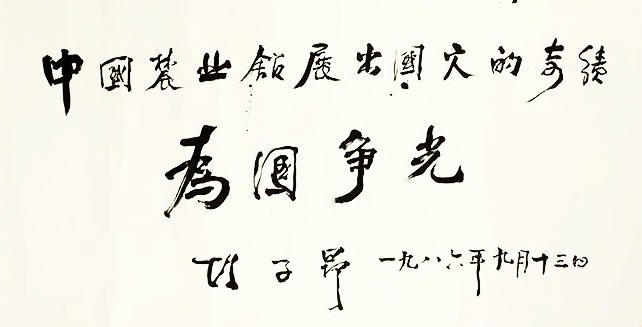 中國農业館展出國穴的奇績
為國争光
胡子昂 一九八六年九月十三日